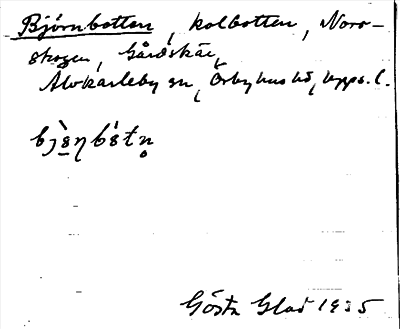 Björnbotten, kolbotten, Noro-
skogen, Gårdskär,
Älvkarleby sn, Örbyhus hd, Upps. l.
Gösta Glad 1935